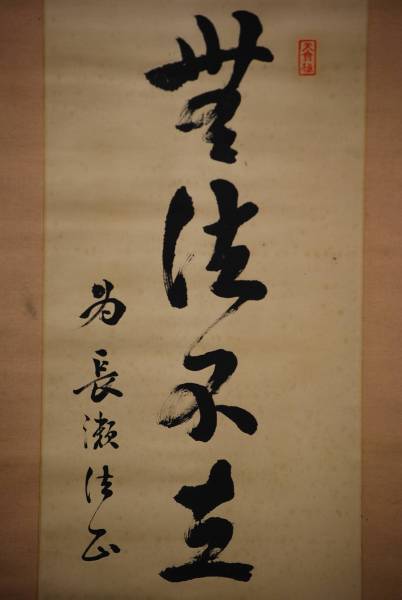 無法不立
為長瀬法正